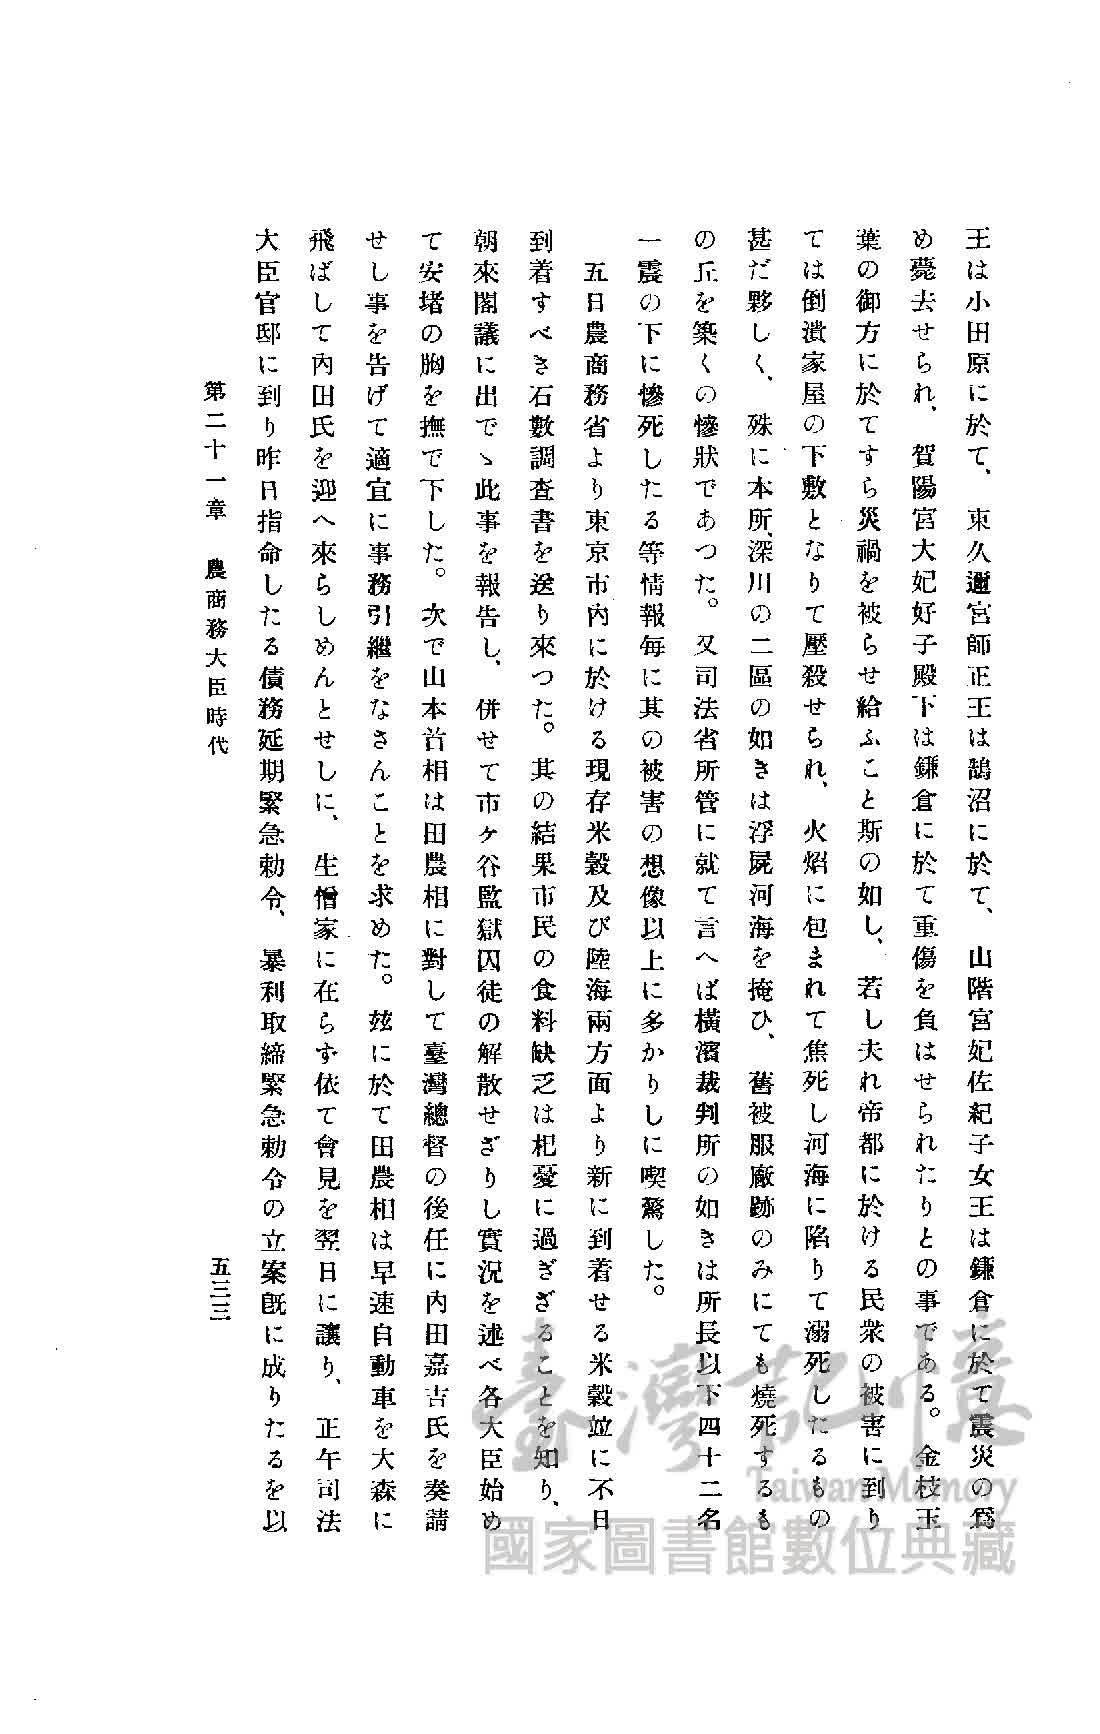 王は小田原に於て、東久邇宮師正王は鵠沼に於て、山階宮妃佐紀子女王は鎌倉に於て震災の爲
め薨去せられ、賀陽宮大妃好子殿下は鎌倉に於て重傷を負はせられたりとの事である。金枝玉
葉の御方に於てすら災禍を被らせ給ふこと斯の如し、若し夫れ帝都に於ける民衆の被害に到り
ては倒潰家屋の下敷となりて壓殺せられ、火焰に包まれて焦死し河海に陷りて溺死したるもの
甚だ夥しく、殊に本所、深川の二區の如きは浮屍河海を掩ひ、舊被服廠跡のみにても燒死するも
の丘を築くの慘狀であつた。又司法省所管に就て言へば橫濱裁判所の如きは所長以下四十二名
一震の下に慘死したる等情報每に其の被害の想像以上に多かりしに喫驚した。
五日農商務省より東京市內に於ける現存米穀及び陸海兩方面より新に到着せる米穀竝に不日
到着すべき石數調査書を送り來つた。其の結果市民の食料缺乏は杞憂に過ぎざることを知り、
朝來閣議に出でゝ此事を報告し、併せて市ケ谷監獄囚徒の解散せざりし實況を述べ各大臣始め
て安堵の胸を撫で下した。次で山本首相は田農相に對して臺灣總督の後任に內田嘉吉氏を奏請
せし事を告げて適宜に事務引繼をなさんことを求めた。玆に於て田農相は早速自動車を大森に
飛ばして內田氏を迎へ來らしめんとせしに、生憎家に在らず依て會見を翌日に讓り、正午司法
大臣官邸に到り昨日指命したる債務延期緊急勅令、暴利取締緊急勅令の立案旣に成りたるを以
第二十一章　農商務大臣時代
五三三
臺灣記憶
Taiwan Memory
國家圖書館數位典藏